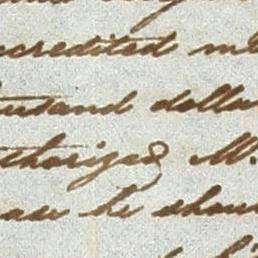 ccredited m
usand dolla
thorized M.
ase he shou